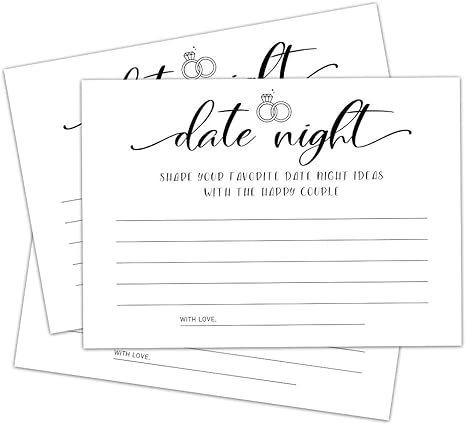 date night
SHARE YOUR FAVORITE DATE NIGHT IDEAS
WITH THE HAPPY COUPLE
WITH LOVE,
night
WITH LOVE,